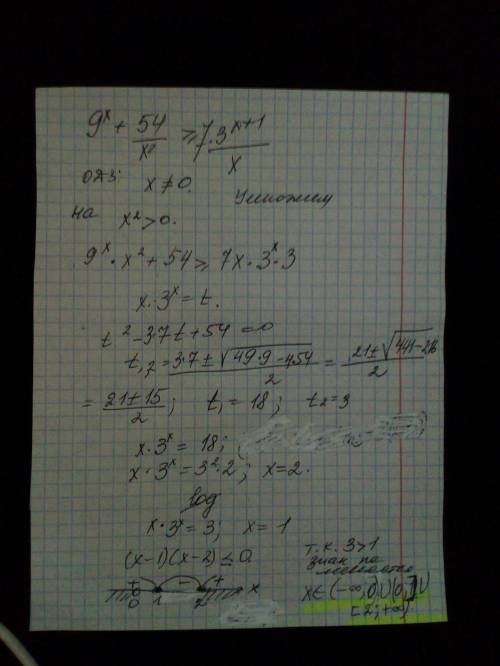 9^x + 54/x² ≥ 7·3^(x+1)/x
ОДЗ: x ≠ 0. Умножим
на x² > 0.
9^x · x² + 54 ≥ 7x · 3^x · 3
x · 3^x = t.
t² - 3·7t + 54 = 0
t₁,₂ = (3·7 ± √(49·9 - 4·54))/2 = (21 ± √(441 - 216))/2
= (21 ± 15)/2; t₁ = 18; t₂ = 3
x · 3^x = 18;
x · 3^x = 3² · 2; x = 2.
x · 3^x = 3; x = 1
(x-1)(x-2) ≤ 0
т.к. 3 > 1
знак не
+ - + x
0 1 2
x ∈ (-∞; 0) ∪ (0; 1] ∪
[2; +∞)